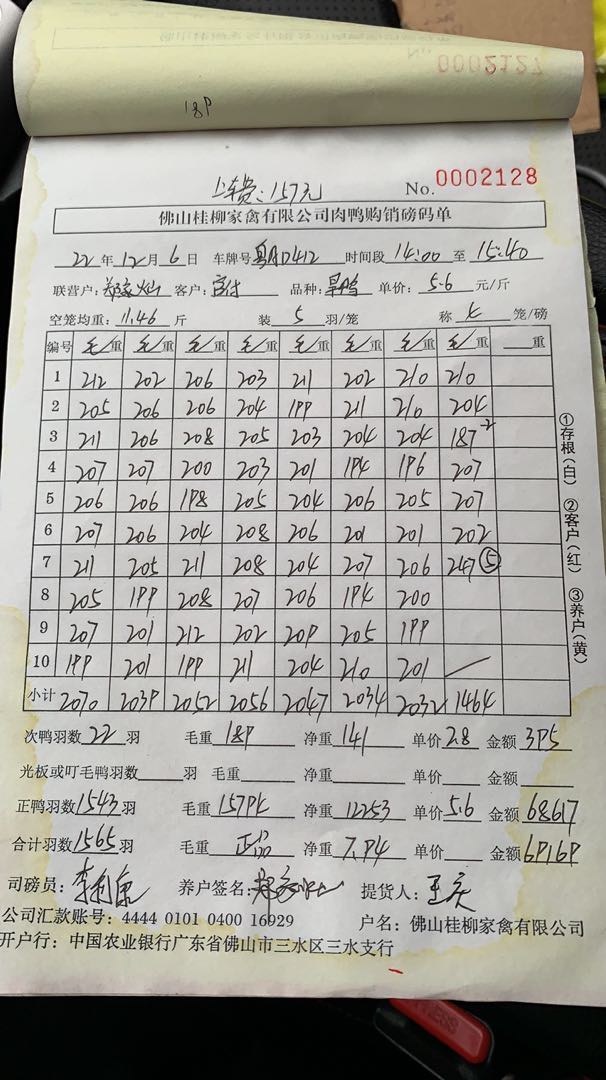 No. 0002127
189
上车费:157元
No. 0002128
佛山桂柳家禽有限公司肉鸭购销磅码单
22年12月6日 车牌号 粤AD412 时间段 14:00 至 15:40
联营户: 客户: 品种: 单价: 5.6 元/斤
空笼均重: 11.46 斤 装 5 羽/笼 称 笼/磅
编号 毛重 毛重 毛重 毛重 毛重 毛重 毛重 毛重 重
1 212 202 206 203 211 202 210 210
2 205 206 206 204 199 211 210 204
3 211 206 208 205 203 204 204 187 -2
4 207 207 200 203 201 194 196 207
5 206 206 198 205 204 206 205 207
6 207 206 204 208 206 201 201 202
7 211 205 211 208 204 207 206 247 ⑤
8 205 199 208 207 206 194 200
9 207 201 212 202 209 205 199
10 199 201 199 211 204 210 201
小计 2070 2039 2052 2056 2047 2034 2032 1464
①存根(白) ②客户(红) ③养户(黄)
次鸭羽数 22 羽 毛重 189 净重 141 单价 2.8 金额 395
光板或叮毛鸭羽数 羽 毛重 净重 单价 金额
正鸭羽数 1543 羽 毛重 15794 净重 12253 单价 5.6 金额 68617
合计羽数 1565 羽 毛重 正品 净重 7.94 单价 金额 69169
司磅员: 养户签名: 提货人: 王庆
公司汇款账号: 4444 0101 0400 16929 户名: 佛山桂柳家禽有限公司
开户行: 中国农业银行广东省佛山市三水区三水支行